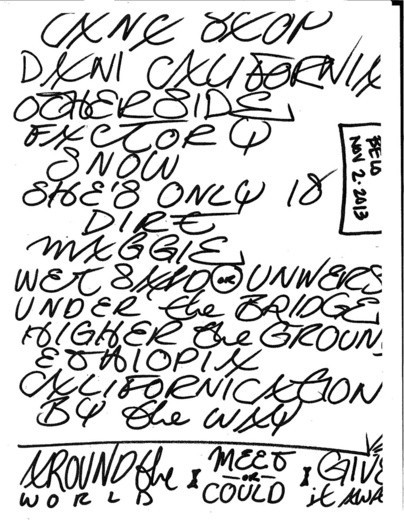 CANT STOP
DANI CALIFORNIA
OTHERSIDE
FACTOR Y
SNOW
SHE'S ONLY 18
DIRE
MAGGIE
WET SAND OR UNIVERS
UNDER the BRIDGE
HIGHER the GROUN
ETHIOPIA
CALIFORNICATION
BY the WAY
BELO
NOV 2. 2013
AROUND the WORLD
MEET OR COULD
GIVE it AWA